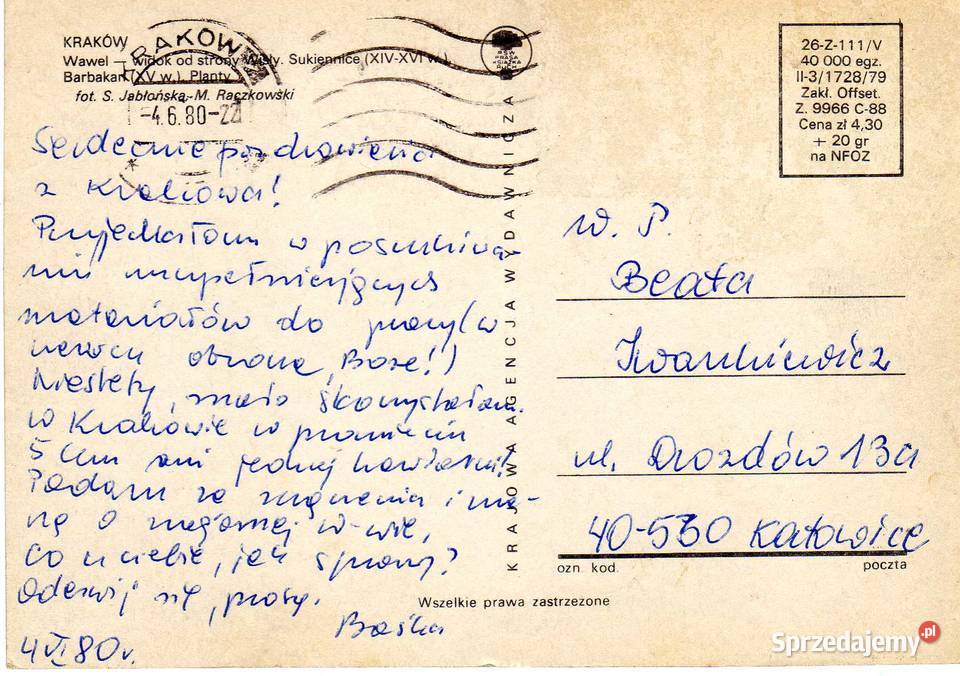 KRAKÓW
Wawel — widok od strony Wisły. Sukiennice (XIV-XVI w.).
Barbakan (XV w.). Planty
fot. S. Jabłońska, M. Raczkowski
KRAKÓW
-4.6.80-22
RSW
PRASA
KSIĄŻKA
RUCH
26-Z-111/V
40 000 egz.
II-3/1728/79
Zakł. Offset.
Z. 9966 C-88
Cena zł 4,30
+ 20 gr
na NFOZ
Serdeczne pozdrowienia
z Krakowa!
Przyjechałam w poszukiwa-
niu uzupełniających
materiałów do pracy (w
obrona, Boże!)
Niestety, mało skorzystałam.
W Krakowie w promieniu
5 km ani jednej kawiarni!
Padam ze zmęczenia i ma-
rzę o W-wie,
Co u ciebie, jak sprawy?
Odezwij się, proszę.
Baśka
4 VI 80 r.
KRAJOWA AGENCJA WYDAWNICZA
W. P.
Beata
Iwankiewicz
ul. Drozdów 13a
40-530 Katowice
ozn. kod.
poczta
Wszelkie prawa zastrzeżone
Sprzedajemy.pl